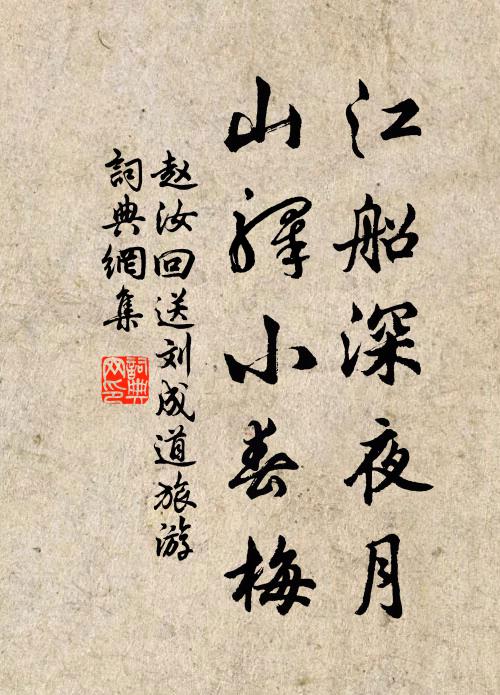 江船深夜月
山驛小春梅
赵汝回送刘成道旅游
詞典網集
詞典网印